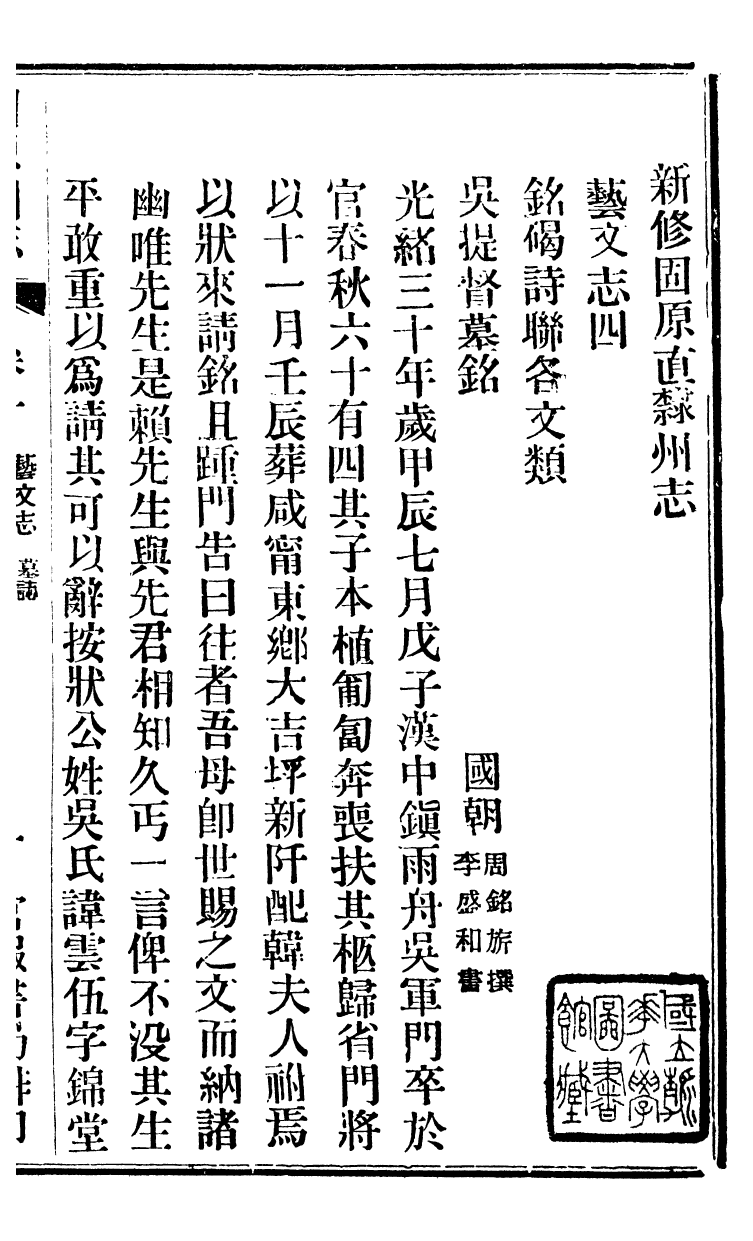 新修固原直隸州志
藝文志四
銘碣詩聯各文類
吳提督墓銘
國朝
周銘旂撰
李感和書
光緒三十年歲甲辰七月戊子漢中鎭雨舟吳軍門卒於
官春秋六十有四其子本植匍匐奔喪扶其柩歸省門將
以十一月壬辰葬咸甯東鄉大吉坪新阡配韓夫人祔焉
以狀來請銘且踵門告曰往者吾母卽世賜之文而納諸
幽唯先生是賴先生與先君相知久丐一言俾不没其生
平敢重以爲請其可以辭按狀公姓吳氏諱雲伍字錦堂
藝文志 墓誌
國立
大學
圖書
館藏